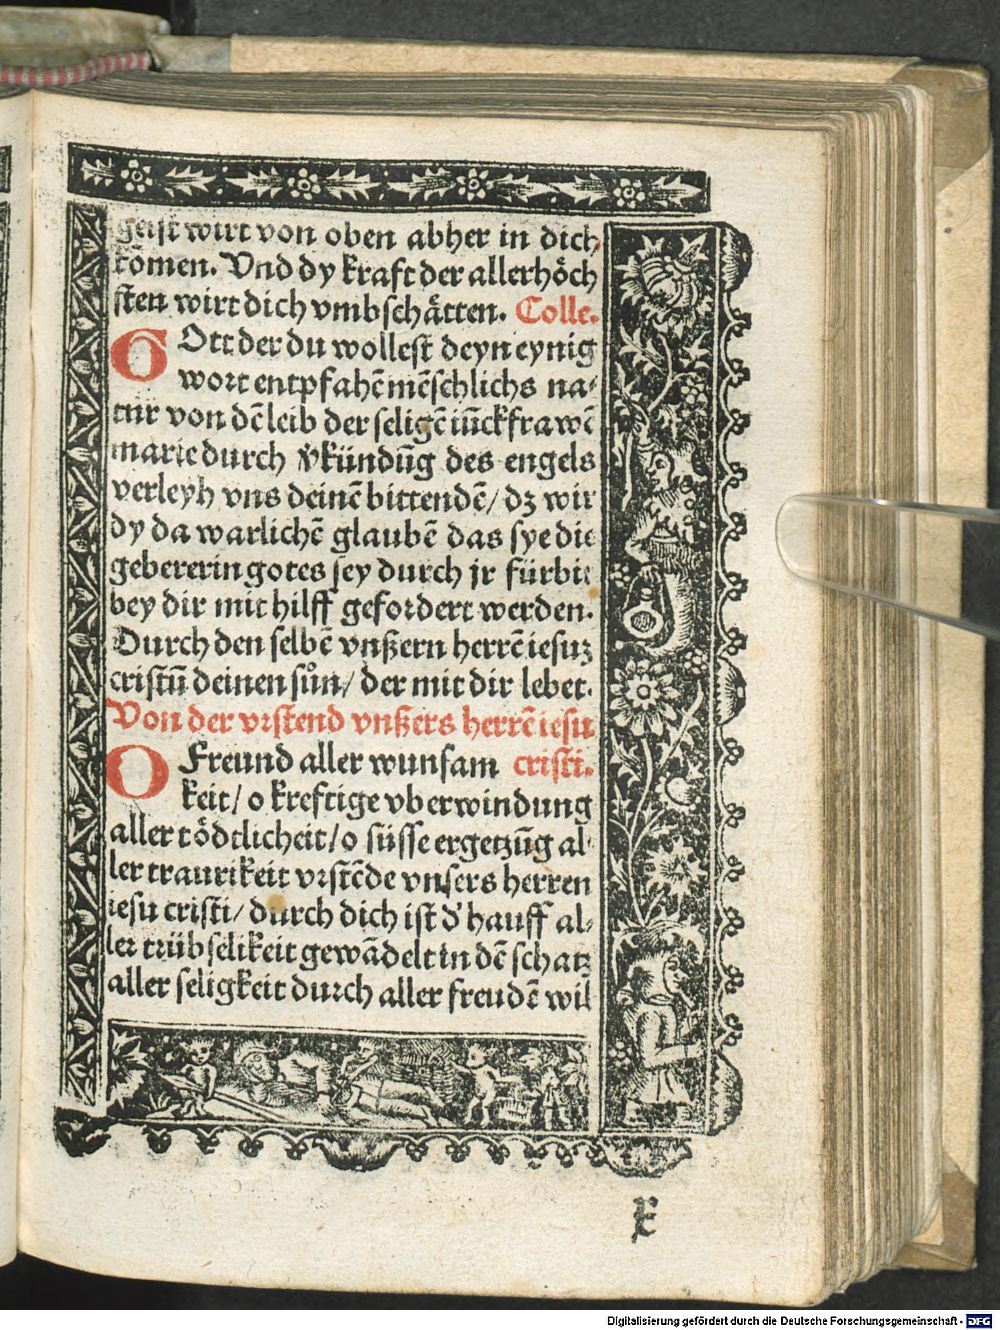 geist wirt von oben abher in dich
komen. Vnd dy kraft der allerhöch
sten wirt dich vmbschätten. Colle.
GOtt der du wollest deyn eynig
wort entpfahē mēschlichs na⸗
tur von dē leib der seligē iūckfrawē
marie durch v̄kündūg des engels
verleyh vns deinē bittendē/ dz wir
dy da warlichē glaubē das sye die
gebererin gotes sey durch jr fürbit
bey dir mit hilff gefordert werden.
Durch den selbē vnßern herrē iesuz
cristū deinen sůn/ der mit dir lebet.
Von der vrstend vnßers herrē iesu
O Freund aller wunsam cristi.
keit/ o kreftige vberwindung
aller tödtlicheit/ o süsse ergetzūg al⸗
ler traurikeit vrstēde vnsers herren
iesu cristi/ durch dich ist d' hauff al⸗
ler trübselikeit gewādelt in dē schatz
aller seligkeit durch aller freudē wil
Digitalisierung gefördert durch die Deutsche Forschungsgemeinschaft - DFG